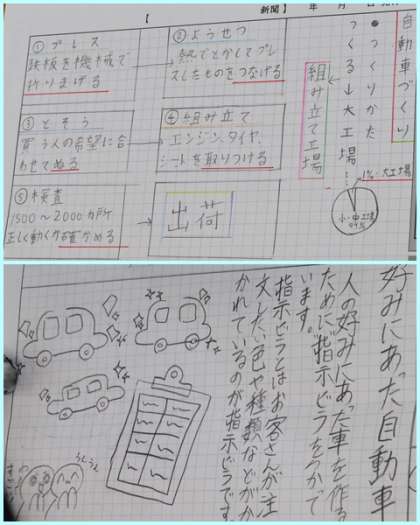 【
新聞】
年
月
自動車づくり
●つくりかた
つくる→大工場……
組み立て工場
1%…大工場
小・中工場
①プレス
鉄板を機械で
折りまげる
②ようせつ
熱でとかしてプレ
スしたものをつなげる
③とそう
買う人の希望に合
わせてぬる
④組み立て
エンジン、タイヤ、
シートを取りつける
⑤検査
1500~2000カ所
正しく動くか確かめる
出荷
好みにあった自動車
人の好みにあった車を作る
ために"指示ビラ"をつかって
います。
指示ビラとはお客さんが注
文した色や種類などがか
かれているのが指示ビラです。
うんうん